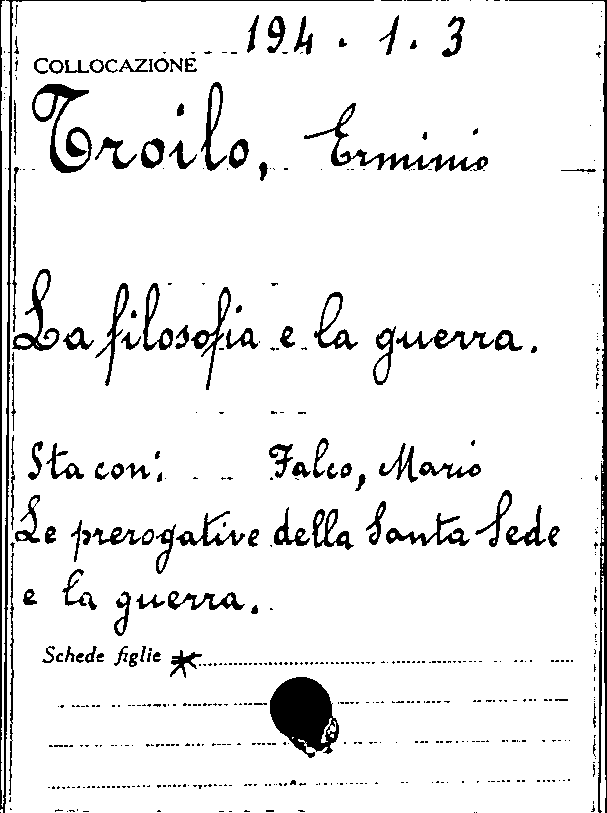 194 . 1. 3
COLLOCAZIONE
Troilo, Erminio
La filosofia e la guerra.
Sta con: Falco, Mario
Le prerogative della Santa Sede
e la guerra.
Schede figlie *